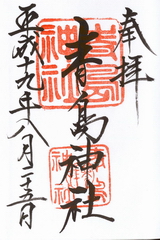 奉拝
青島神社
平成十九年八月二十五日
青島神社